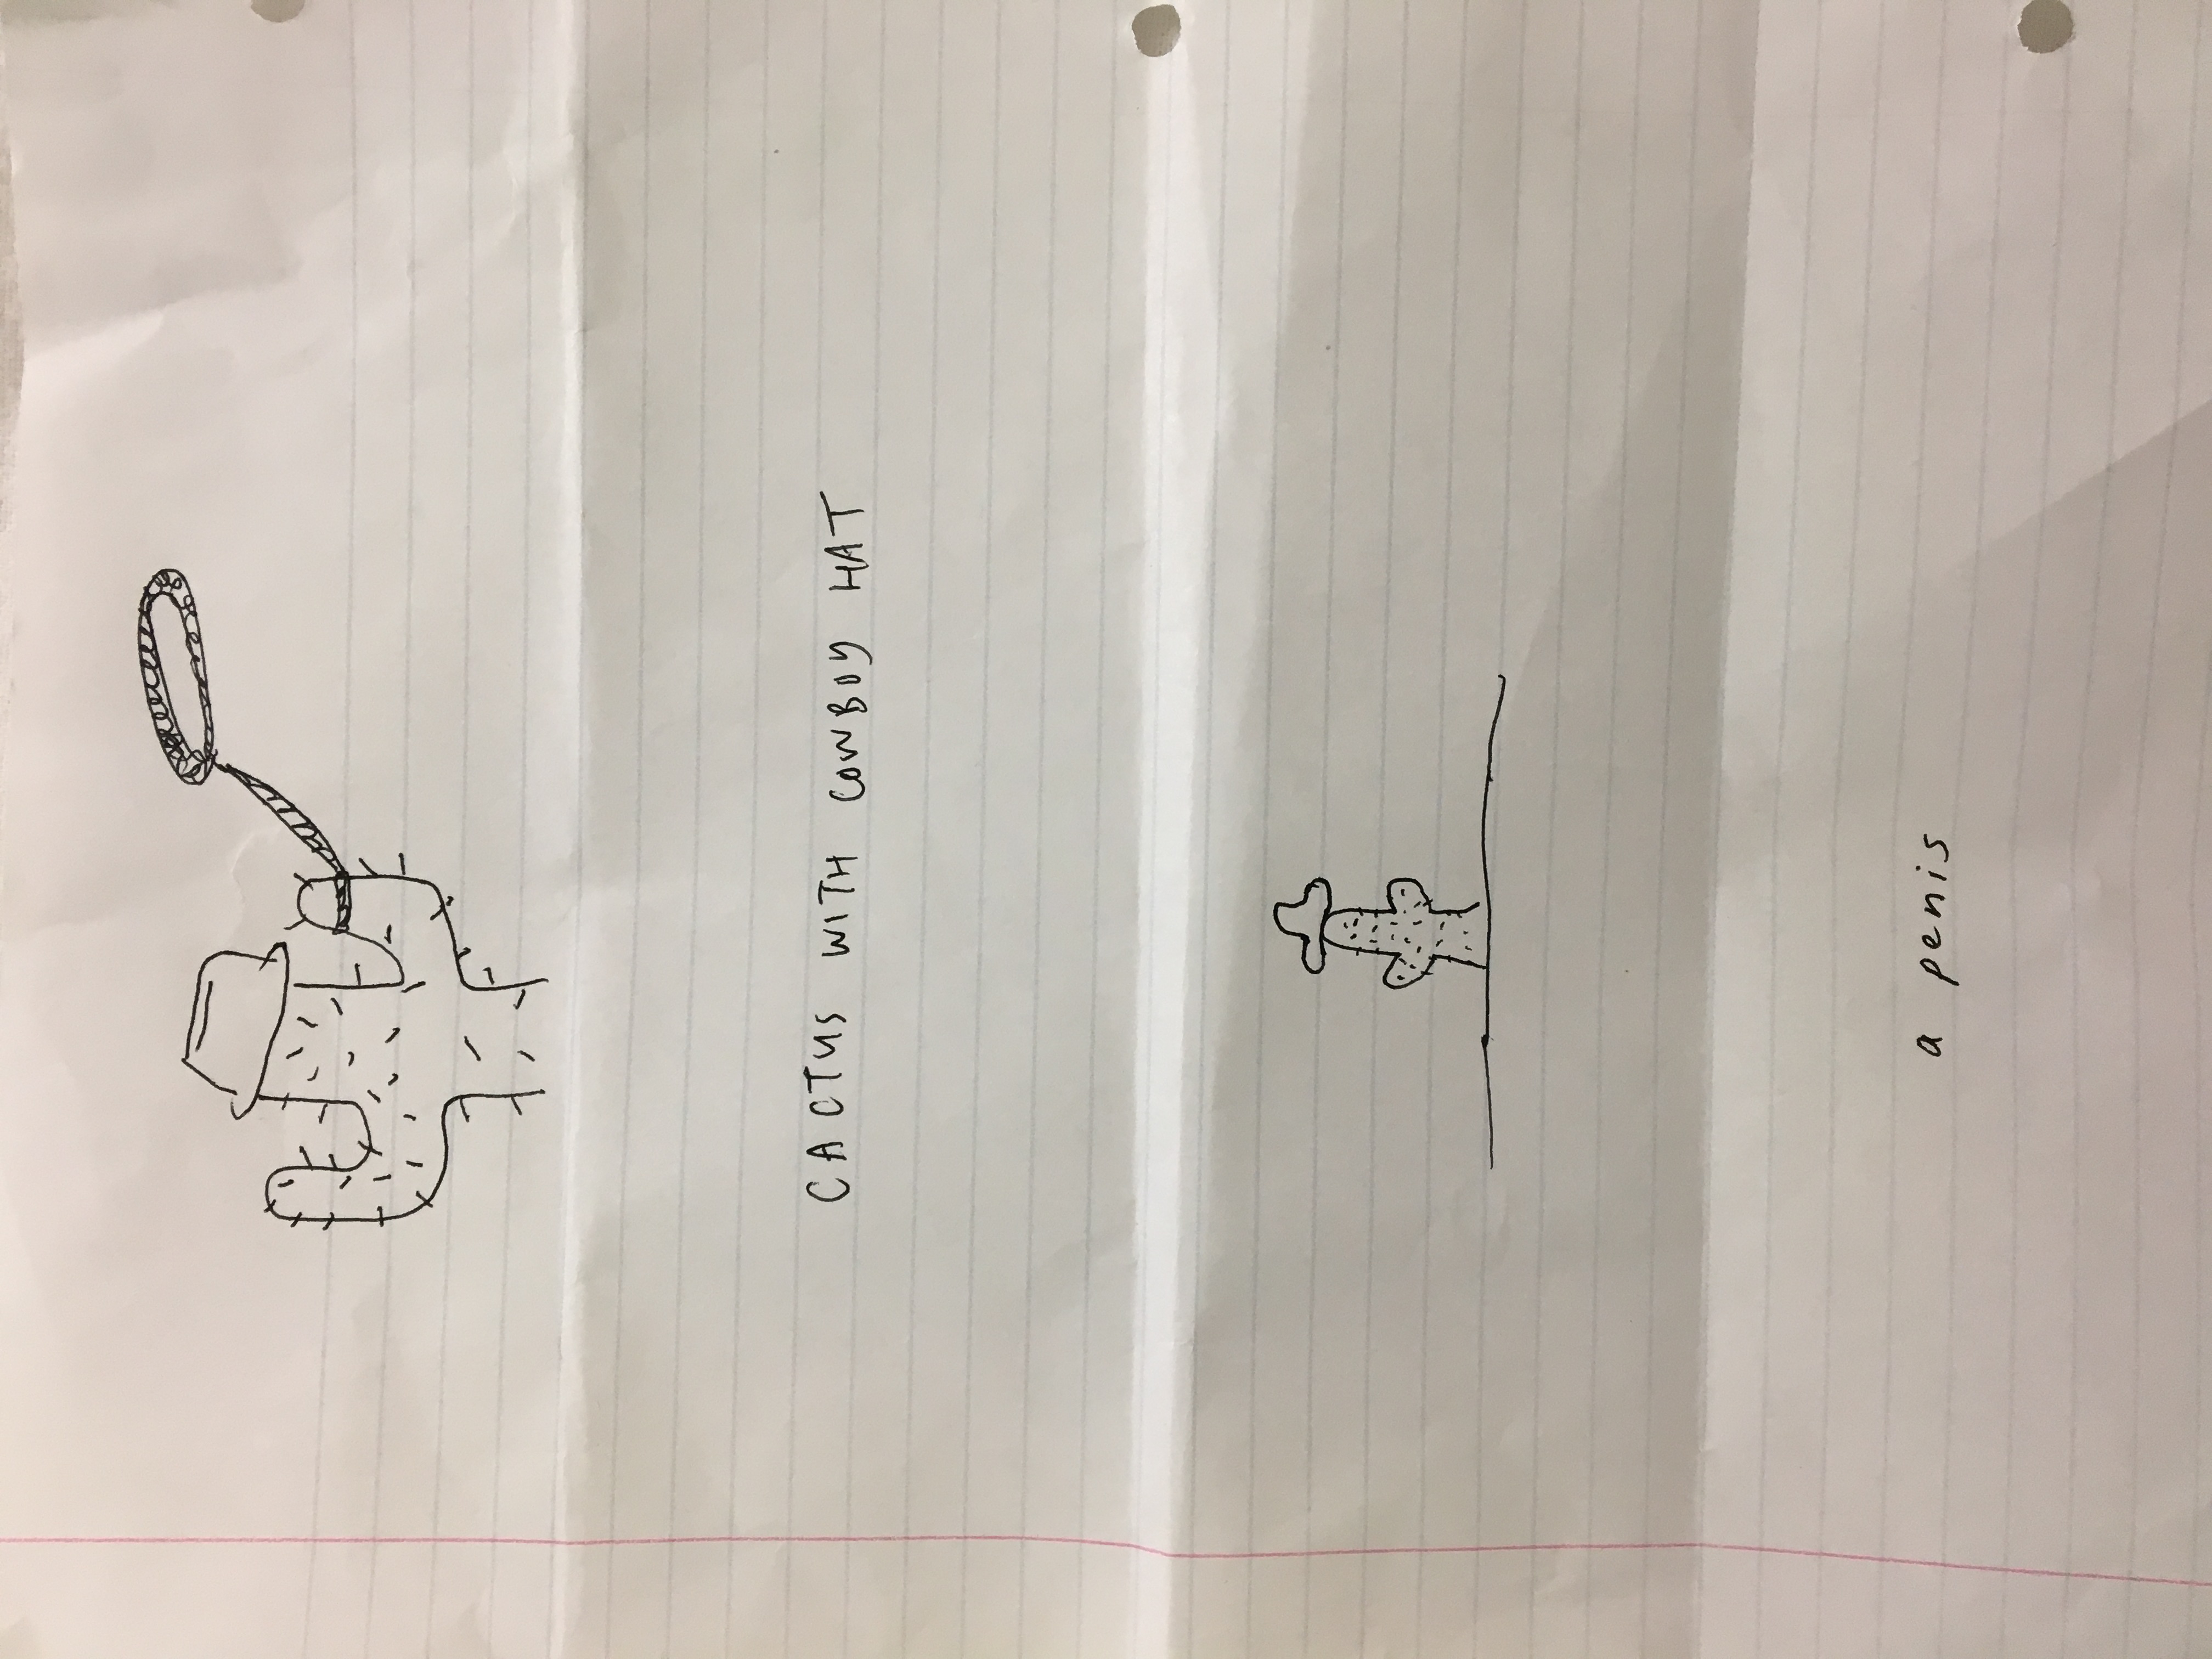 CACTUS WITH COWBOY HAT
a penis